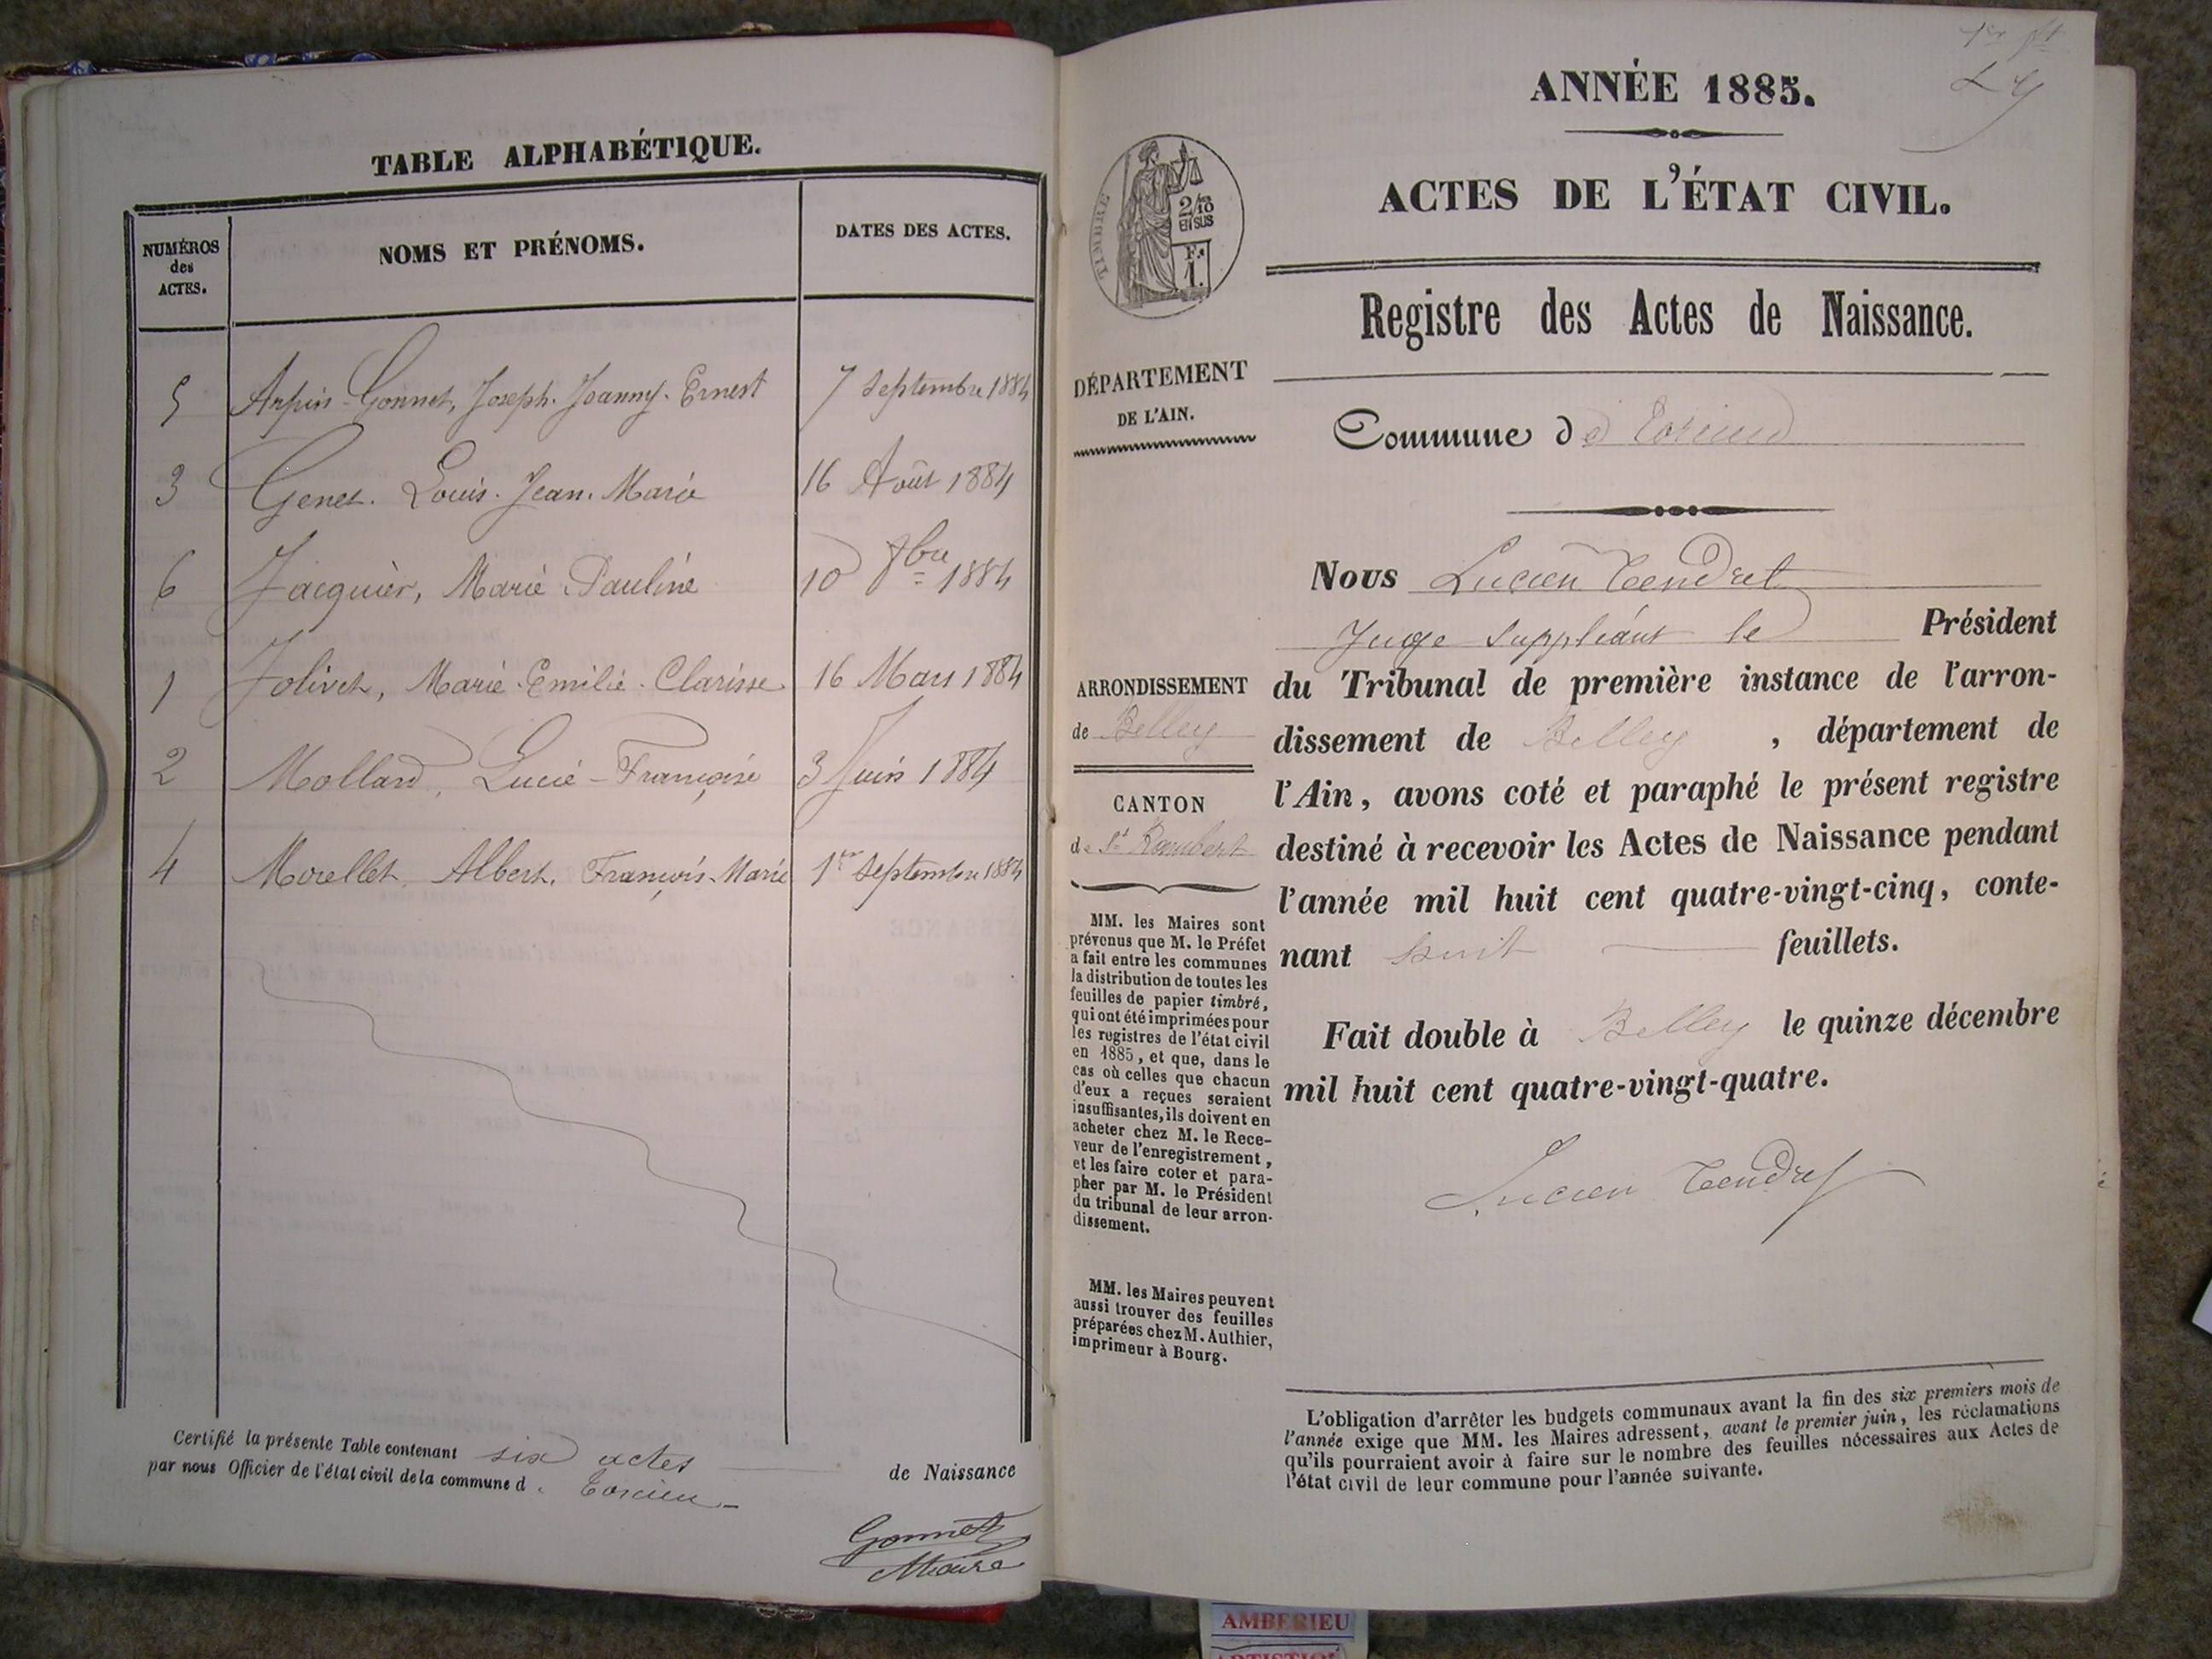 TABLE ALPHABÉTIQUE.
NUMÉROS
des
ACTES.
NOMS ET PRÉNOMS.
DATES DES ACTES.
5 Arpin-Gonnet, Joseph. Jeanny. Ernest 7 Septembre 1884
3 Genet. Louis. Jean. Marie 16 Août 1884
6 Jacquier, Marie Pauline 10 8bre 1884
1 Jolivet, Marie. Emilie. Clarisse 16 Mars 1884
2 Mollard, Lucie-Françoise 3 Juin 1884
4 Morellet Albert. François-Marie 1er Septembre 1884
Certifié la présente Table contenant six actes de Naissance
par nous Officier de l'état civil de la commune d Torcieu
Gonnet
Maire
1er ft
ANNÉE 1885.
ACTES DE L'ÉTAT CIVIL.
TIMBRE
2/10
EN SUS
F.
1.
Registre des Actes de Naissance.
DÉPARTEMENT
DE L'AIN.
Commune de Torcieu
Nous Lucien Tendret
Juge Suppléant le Président
du Tribunal de première instance de l'arron-
dissement de Belley , département de
l'Ain, avons coté et paraphé le présent registre
destiné à recevoir les Actes de Naissance pendant
l'année mil huit cent quatre-vingt-cinq, conte-
nant huit feuillets.
Fait double à Belley le quinze décembre
mil huit cent quatre-vingt-quatre.
Lucien Tendret
ARRONDISSEMENT
de Belley
CANTON
de St Rambert
MM. les Maires sont
prévenus que M. le Préfet
a fait entre les communes
la distribution de toutes les
feuilles de papier timbré,
qui ont été imprimées pour
les registres de l'état civil
en 1885, et que, dans le
cas où celles que chacun
d'eux a reçues seraient
insuffisantes, ils doivent en
acheter chez M. le Rece-
veur de l'enregistrement,
et les faire coter et para-
pher par M. le Président
du tribunal de leur arron-
dissement.
MM. les Maires peuvent
aussi trouver des feuilles
préparées chez M. Authier,
imprimeur à Bourg.
L'obligation d'arrêter les budgets communaux avant la fin des six premiers mois de
l'année exige que MM. les Maires adressent, avant le premier juin, les réclamations
qu'ils pourraient avoir à faire sur le nombre des feuilles nécessaires aux Actes de
l'état civil de leur commune pour l'année suivante.
AMBERIEU